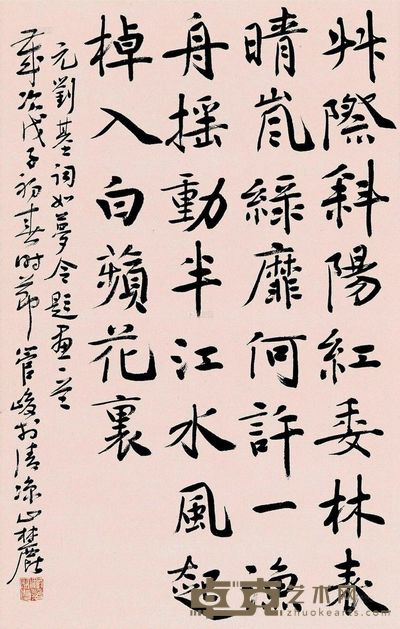 艸際斜陽紅委林表
晴嵐綠靡何許一漁
舟搖動半江水風起
棹入白蘋花裏
元劉基詞如夢令題畫
歲次戊子初春時節管峻於清涼山林麓
卓克艺术网
www.zhuokearts.com